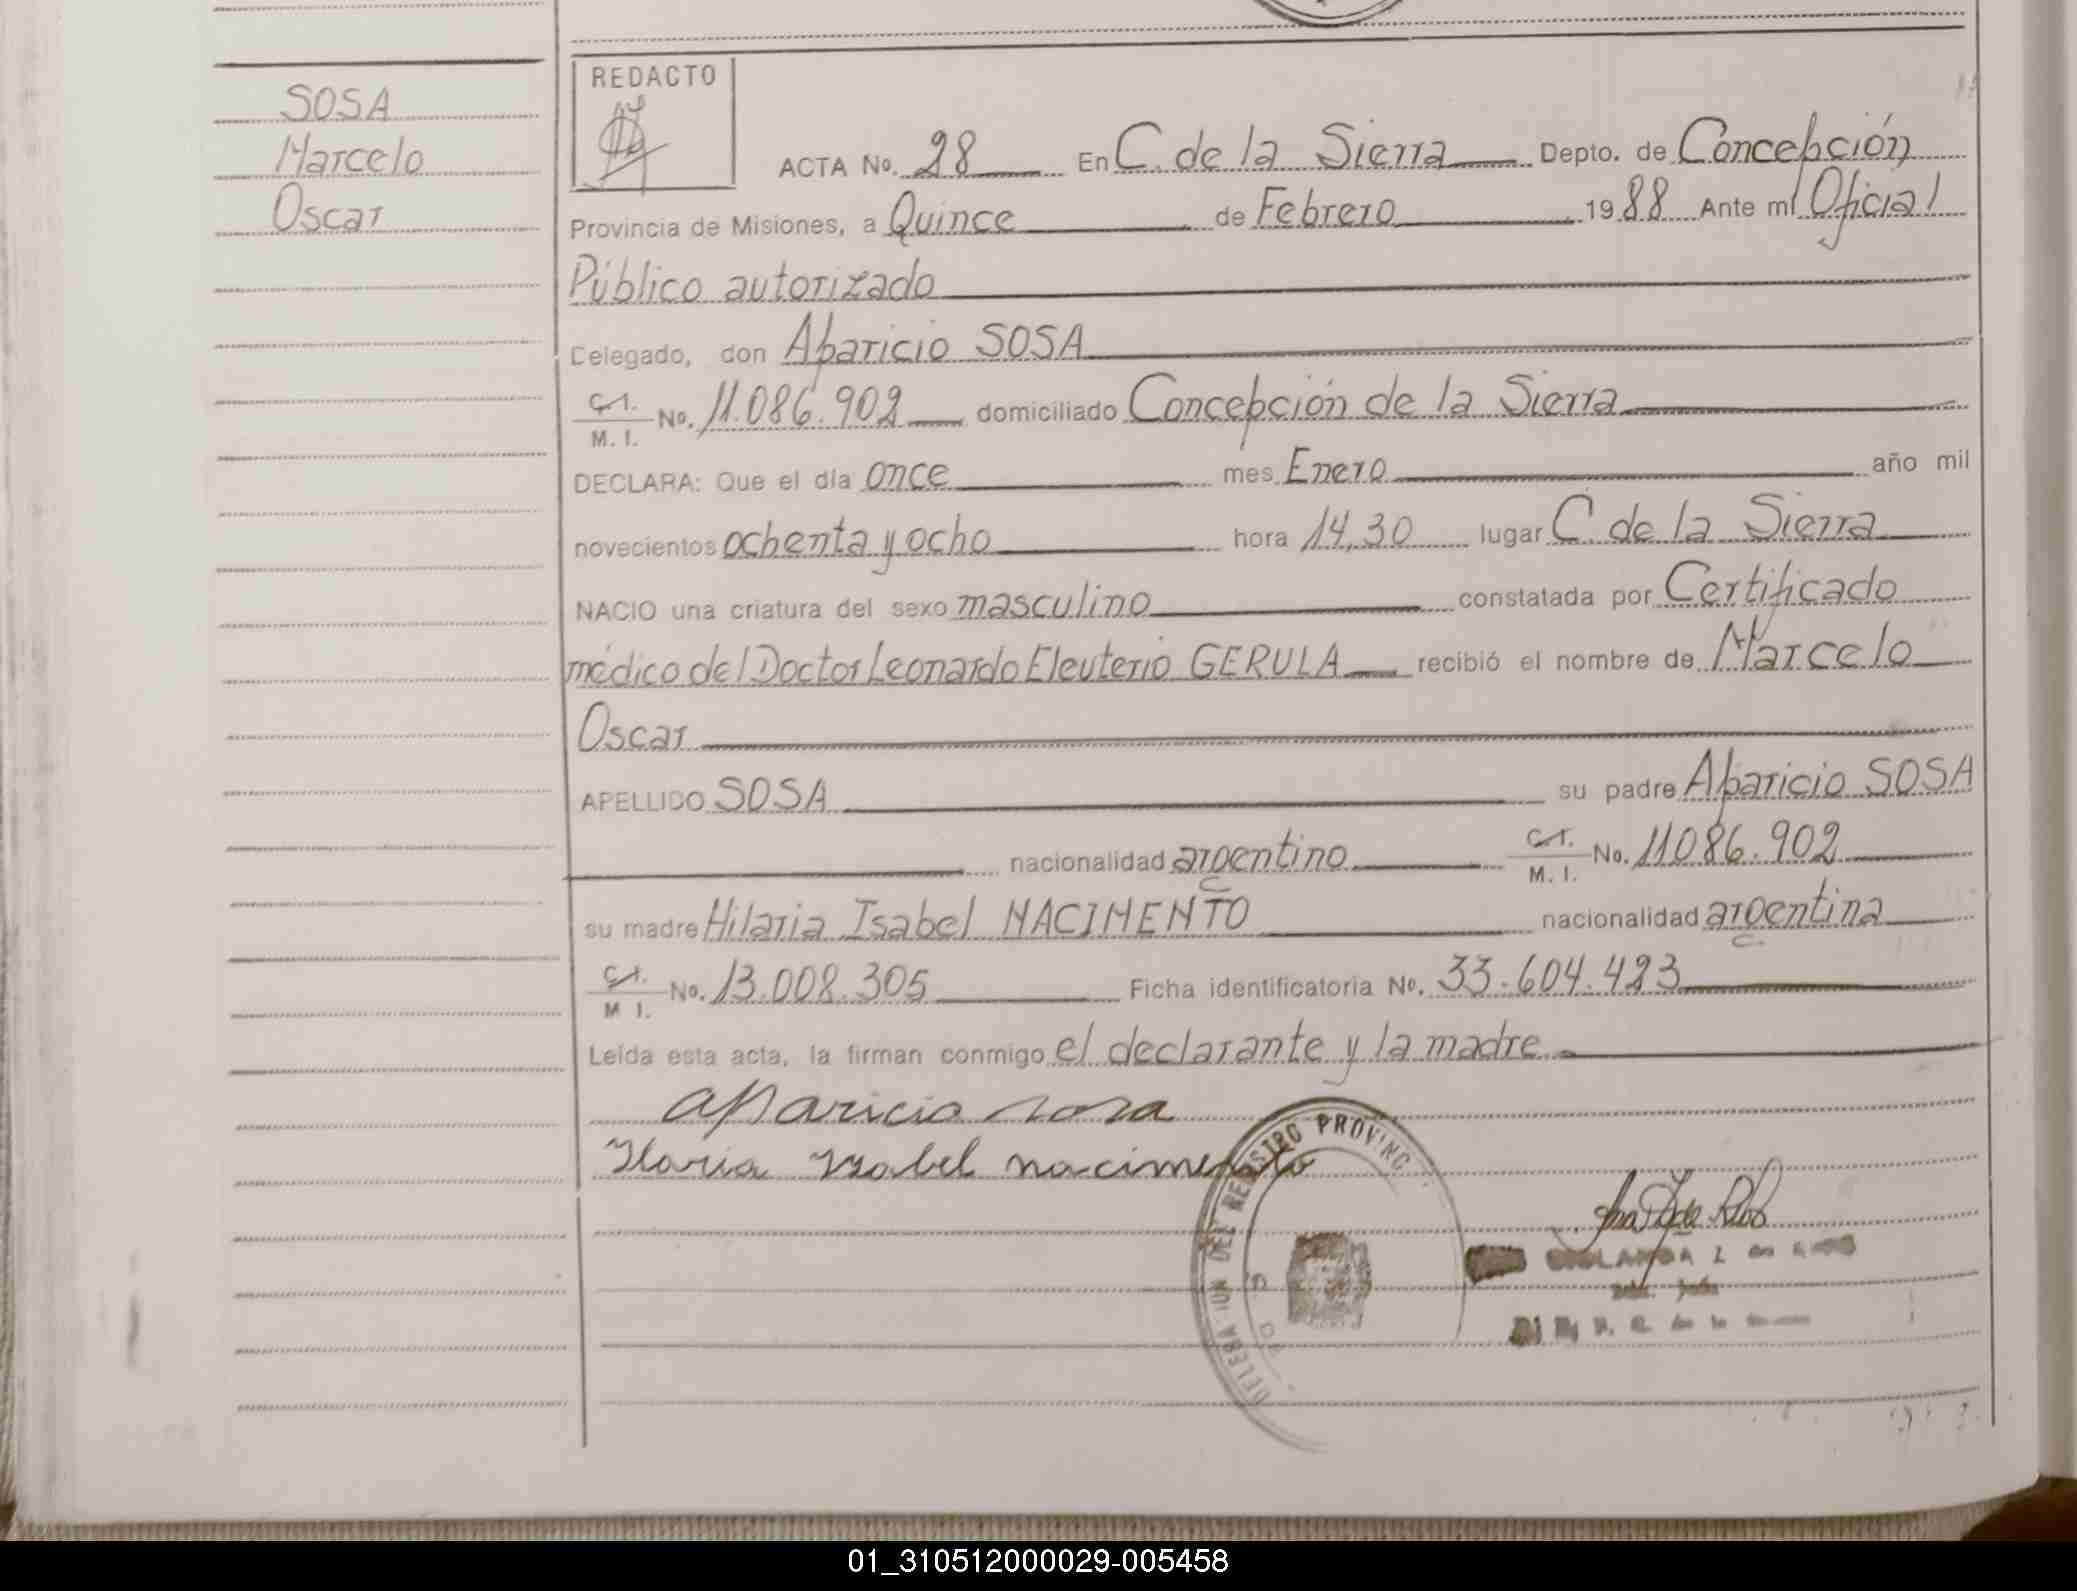 SOSA
Marcelo
Oscar
REDACTO
ACTA No. 28 En C. de la Sierra Depto. de Concepción
Provincia de Misiones, a Quince de Febrero 1988 Ante mí Oficial
Público autorizado
Delegado, don Aparicio SOSA
C.I. M. I. No. 11.086.902 domiciliado Concepción de la Sierra
DECLARA: Que el día once mes Enero año mil
novecientos ochenta y ocho hora 14,30 lugar C. de la Sierra
NACIO una criatura del sexo masculino constatada por Certificado
médico del Doctor Leonardo Eleuterio GERULA recibió el nombre de Marcelo
Oscar
APELLIDO SOSA su padre Aparicio SOSA
nacionalidad argentino C.I. M. I. No. 11086.902
su madre Hilaria Isabel NACIMENTO nacionalidad argentina
C.I. M I. No. 13.008.305 Ficha identificatoria No. 33.604.423
Leída esta acta, la firman conmigo el declarante y la madre
aparicio sosa
Ylaria Yzabel nacimento
DELEGACION DEL REGISTRO PROVINC
01_310512000029-005458